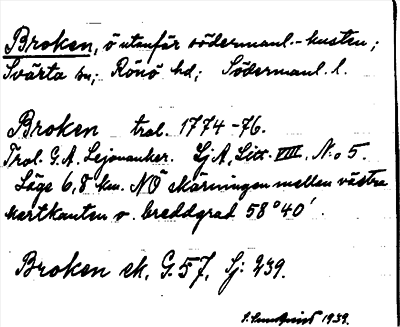 Broken, ö utanför södermanl.-kusten;
Svärta sn; Rönö hd; Södermanl. l.
Broken trol. 1774-76.
Trol. G. A. Lejonanker. SjA, Litt. VIII, N:o 5.
Läge 6,8 km. NÖ skärningen mellan västra
kartkanten o. breddgrad 58°40'.
Broken ek. G. 57, Sj: 239.
1939.